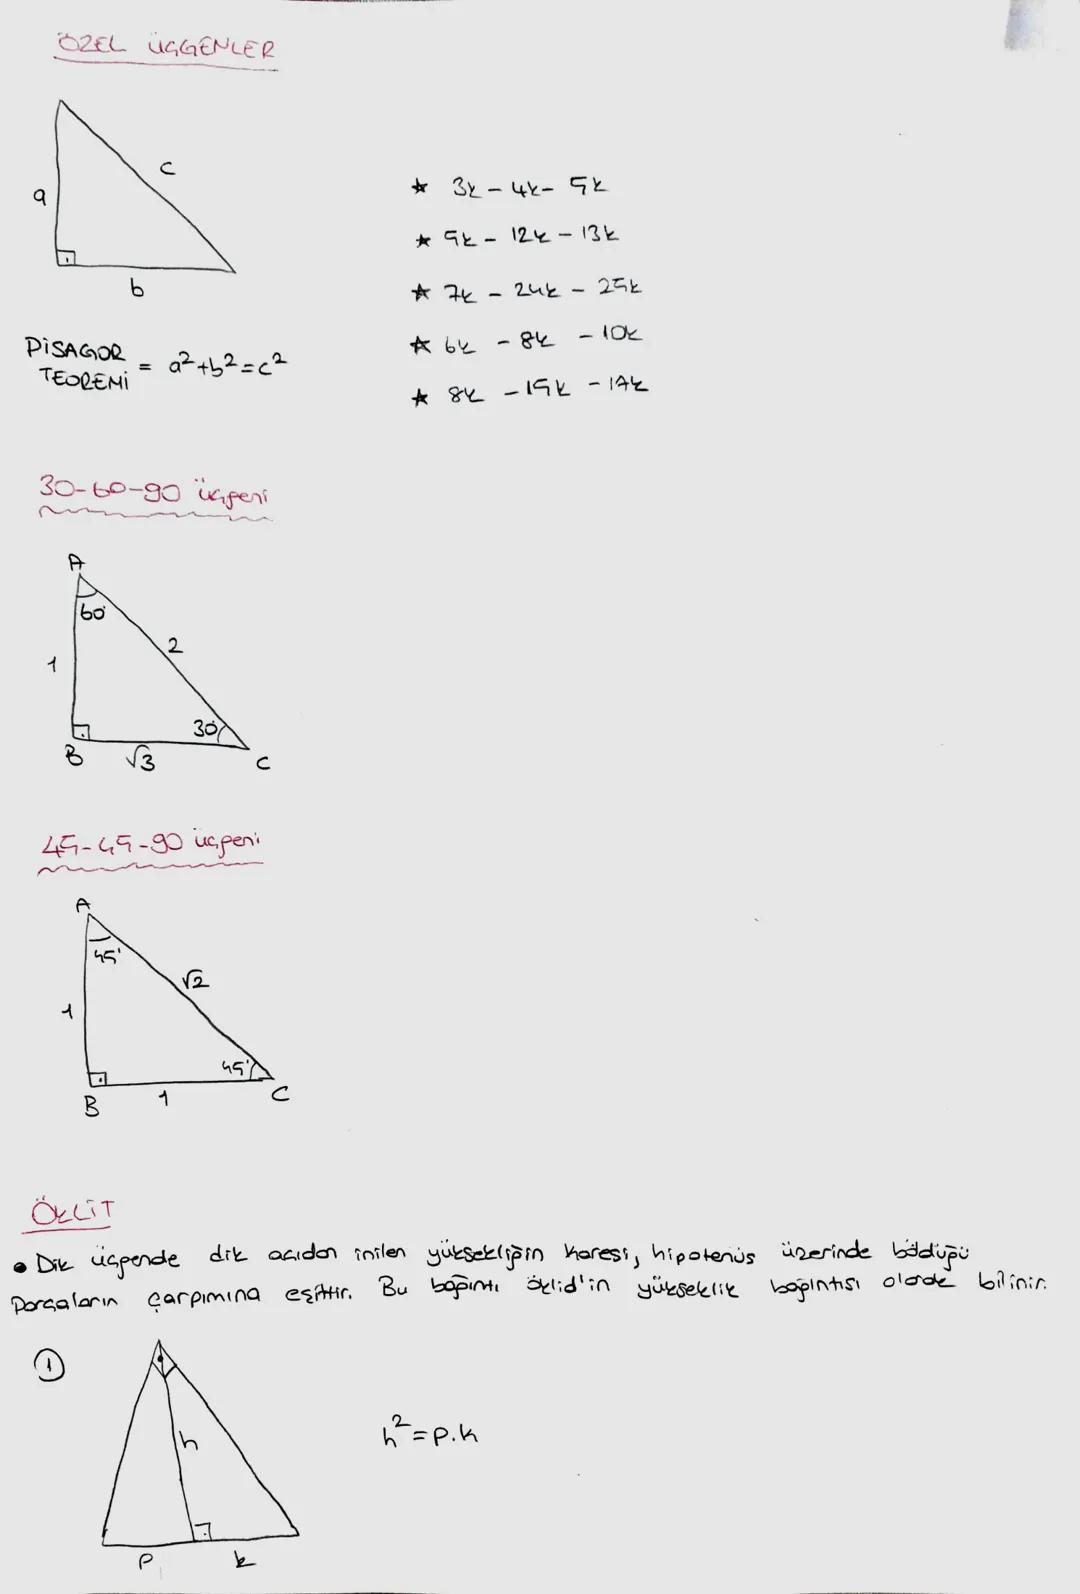 ÖZEL ÜÇGENLER
a
c
b
PİSAGOR TEOREMİ = a²+b²=c²
★ 3k - 4k - 5k
★ 5k - 12k - 13k
★ 7k - 24k - 25k
★ 6k - 8k - 10k
★ 8k - 15k - 17k
30-60-90 üçgeni
A
60°
1
2
30°
B
√3
C
45-45-90 üçgeni
A
45°
√2
1
45°
B
1
C
ÖKLİT
• Dik üçgende dik açıdan inilen yüksekliğin karesi, hipotenüs üzerinde böldüğü
Parçaların çarpımına eşittir. Bu bağıntı öklid'in yükseklik bağıntısı olarak bilinir.
1
h
h²=p.k
P
k